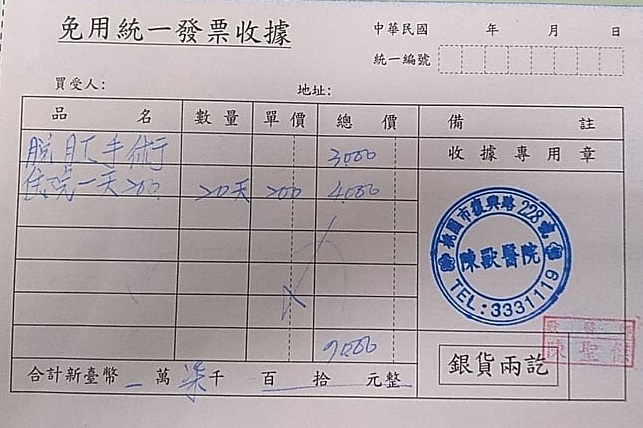 免用統一發票收據
中華民國 年 月 日
統一編號
買受人: 地址:
品名 數量 單價 總價 備註
脫肛手術 3000 收據專用章
住院一天200 20天 200 4000
桃園市復興路228號
陳歐醫院
TEL:3331119
7000
陳聖傑
合計新臺幣 萬柒千 百 拾 元整 銀貨兩訖